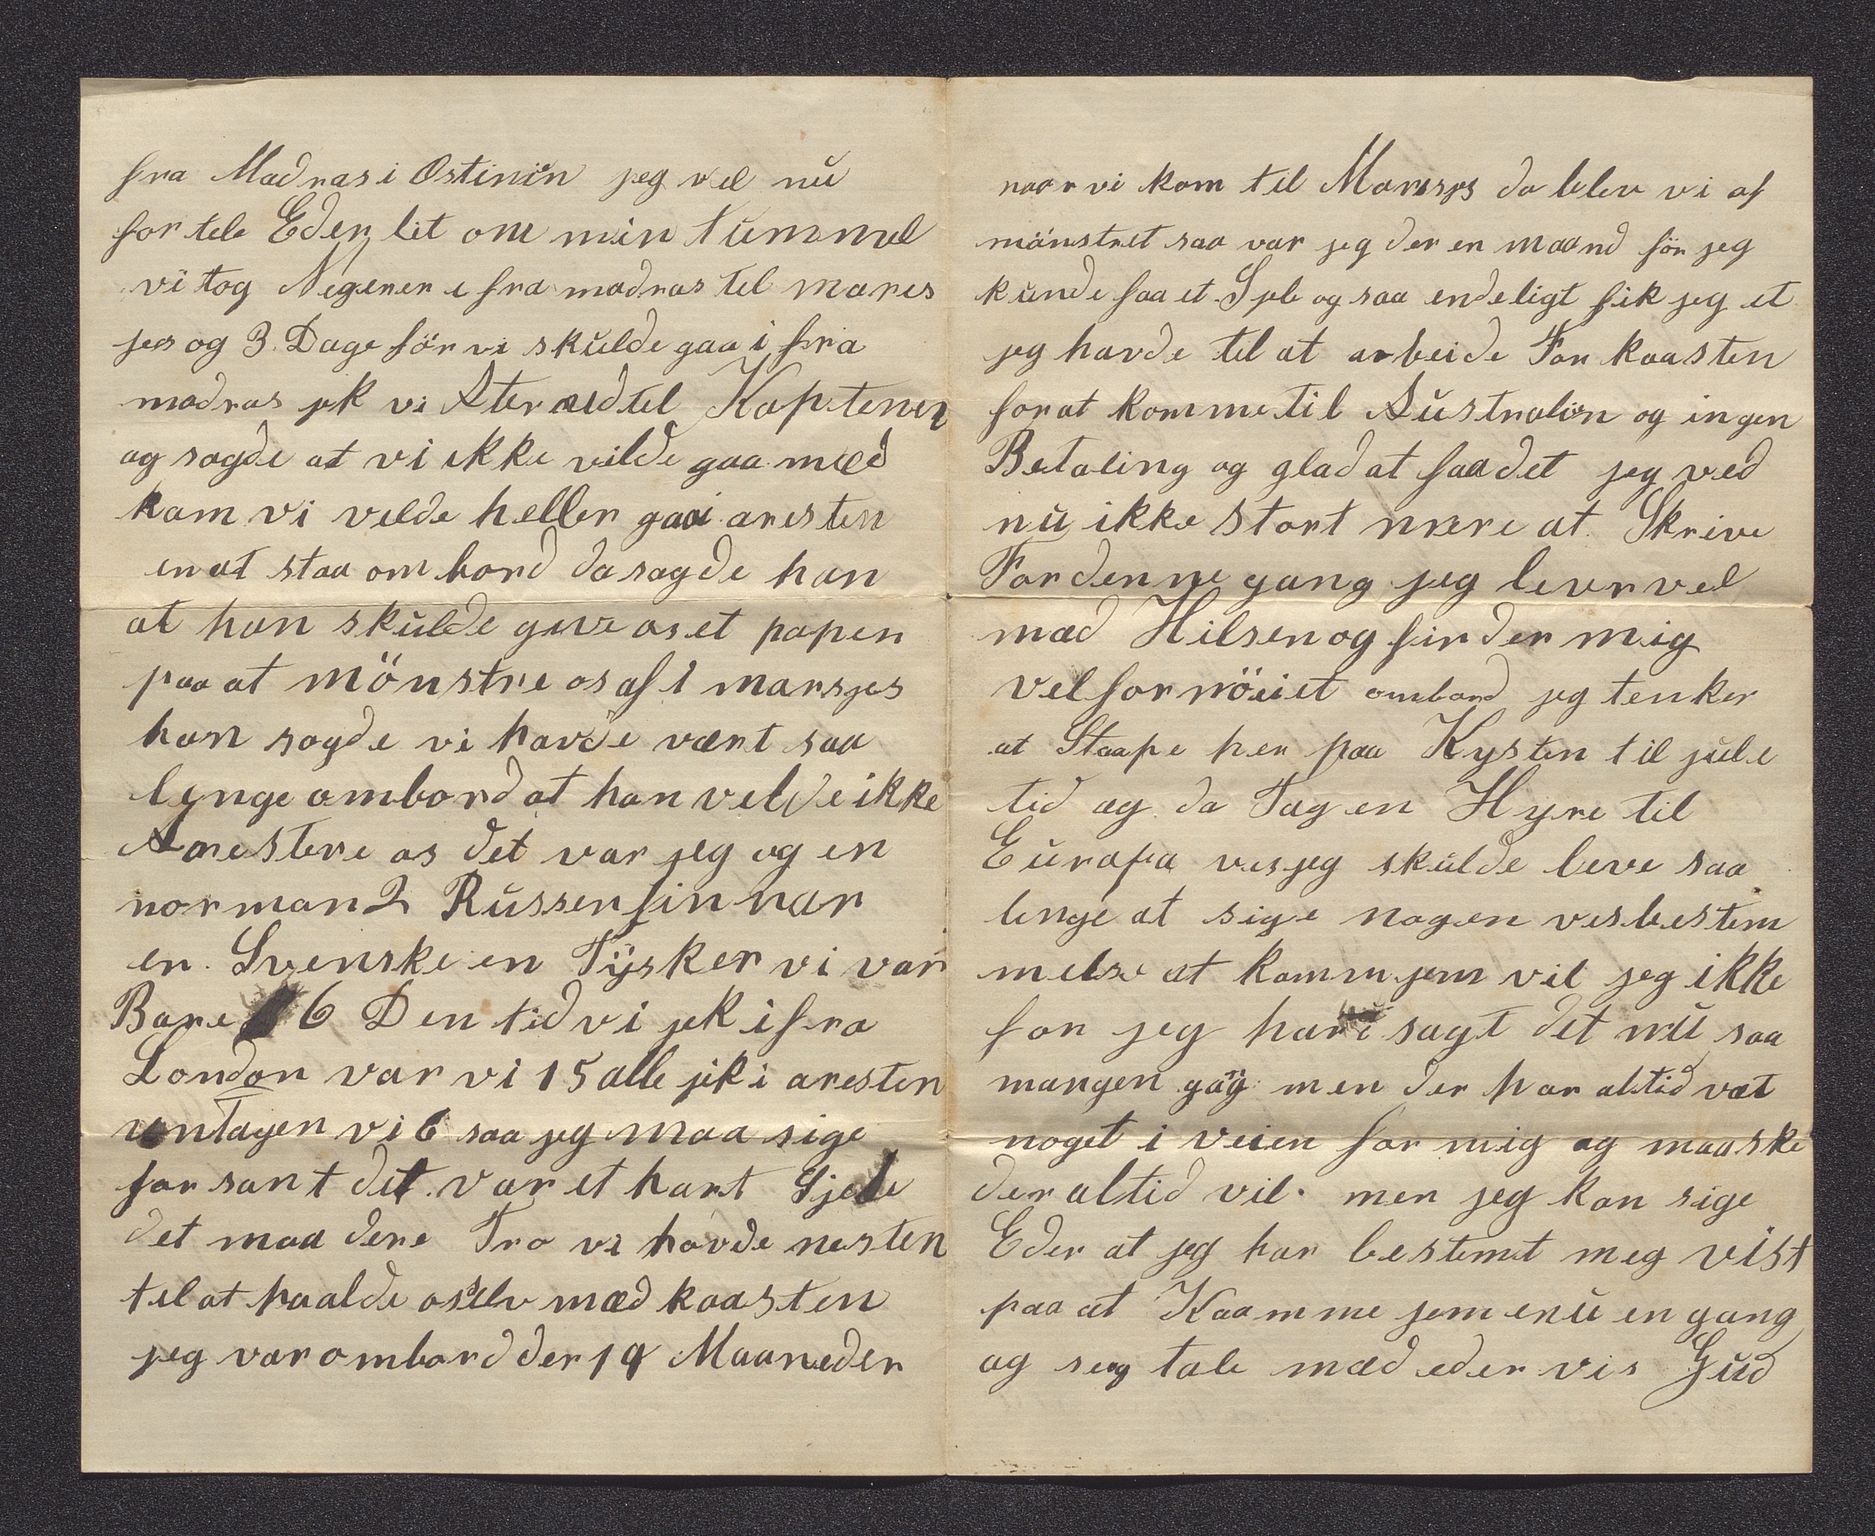 fra Madras i Ostinin jeg vel nu
fortele Eder lit om min Tummel
vi tog Negerer i fra madras tel mares
jes og 3. Dage för vi skulde gaa i fra
madras jk vi Ater ud tel Kaptenen
og sagde at vi ikke vilde gaa med
ham vi velde heller gaa i aresten
en at staa ombord da sagde han
at han skulde give os et paper
paa at mönstre os af i marsjes
han sagde vi havde vært saa
lenge ombord at han velde ikke
Arestere os det var jeg og en
norman 2 Russerfinnar
en Svenske en Tysker vi var
Bare 6 Den tid vi jek i fra
London var vi 15 alle jik i aresten
untagen vi 6 saa jeg maa sige
for sant det var et hart Sjeb
det maa dere Tro vi havde nesten
tel at haalde os selv med kaasten
jeg var ombord der 19 Maaneder
naar vi kom til Marsjes da blev vi af
mönstret saa var jeg der en maand för jeg
kunde faa et Sjb og saa endeligt fik jeg et
jeg havde tel at arbeide For kaasten
for at komme til Australien og ingen
Betaling og glad at faa det jeg ved
nu ikke stort mere at Skrive
For denne gang jeg lever vel
med Hilsen og finder mig
vel fornöiet ombord jeg tenker
at Staape her paa Kysten til jule
tid og da Tag en Hyre til
Europa vis jeg skulde leve saa
lenge at sige nogen visbestem
melse at komm jem vil jeg ikke
for jeg har sagt det nu saa
mangen gag men der har altid væt
noget i veien for mig og maaske
der altid vil. men jeg kan sige
Eder at jeg har bestemt meg vist
paa at Kaamme jem enu en gang
og seog tale med eder vis Gud